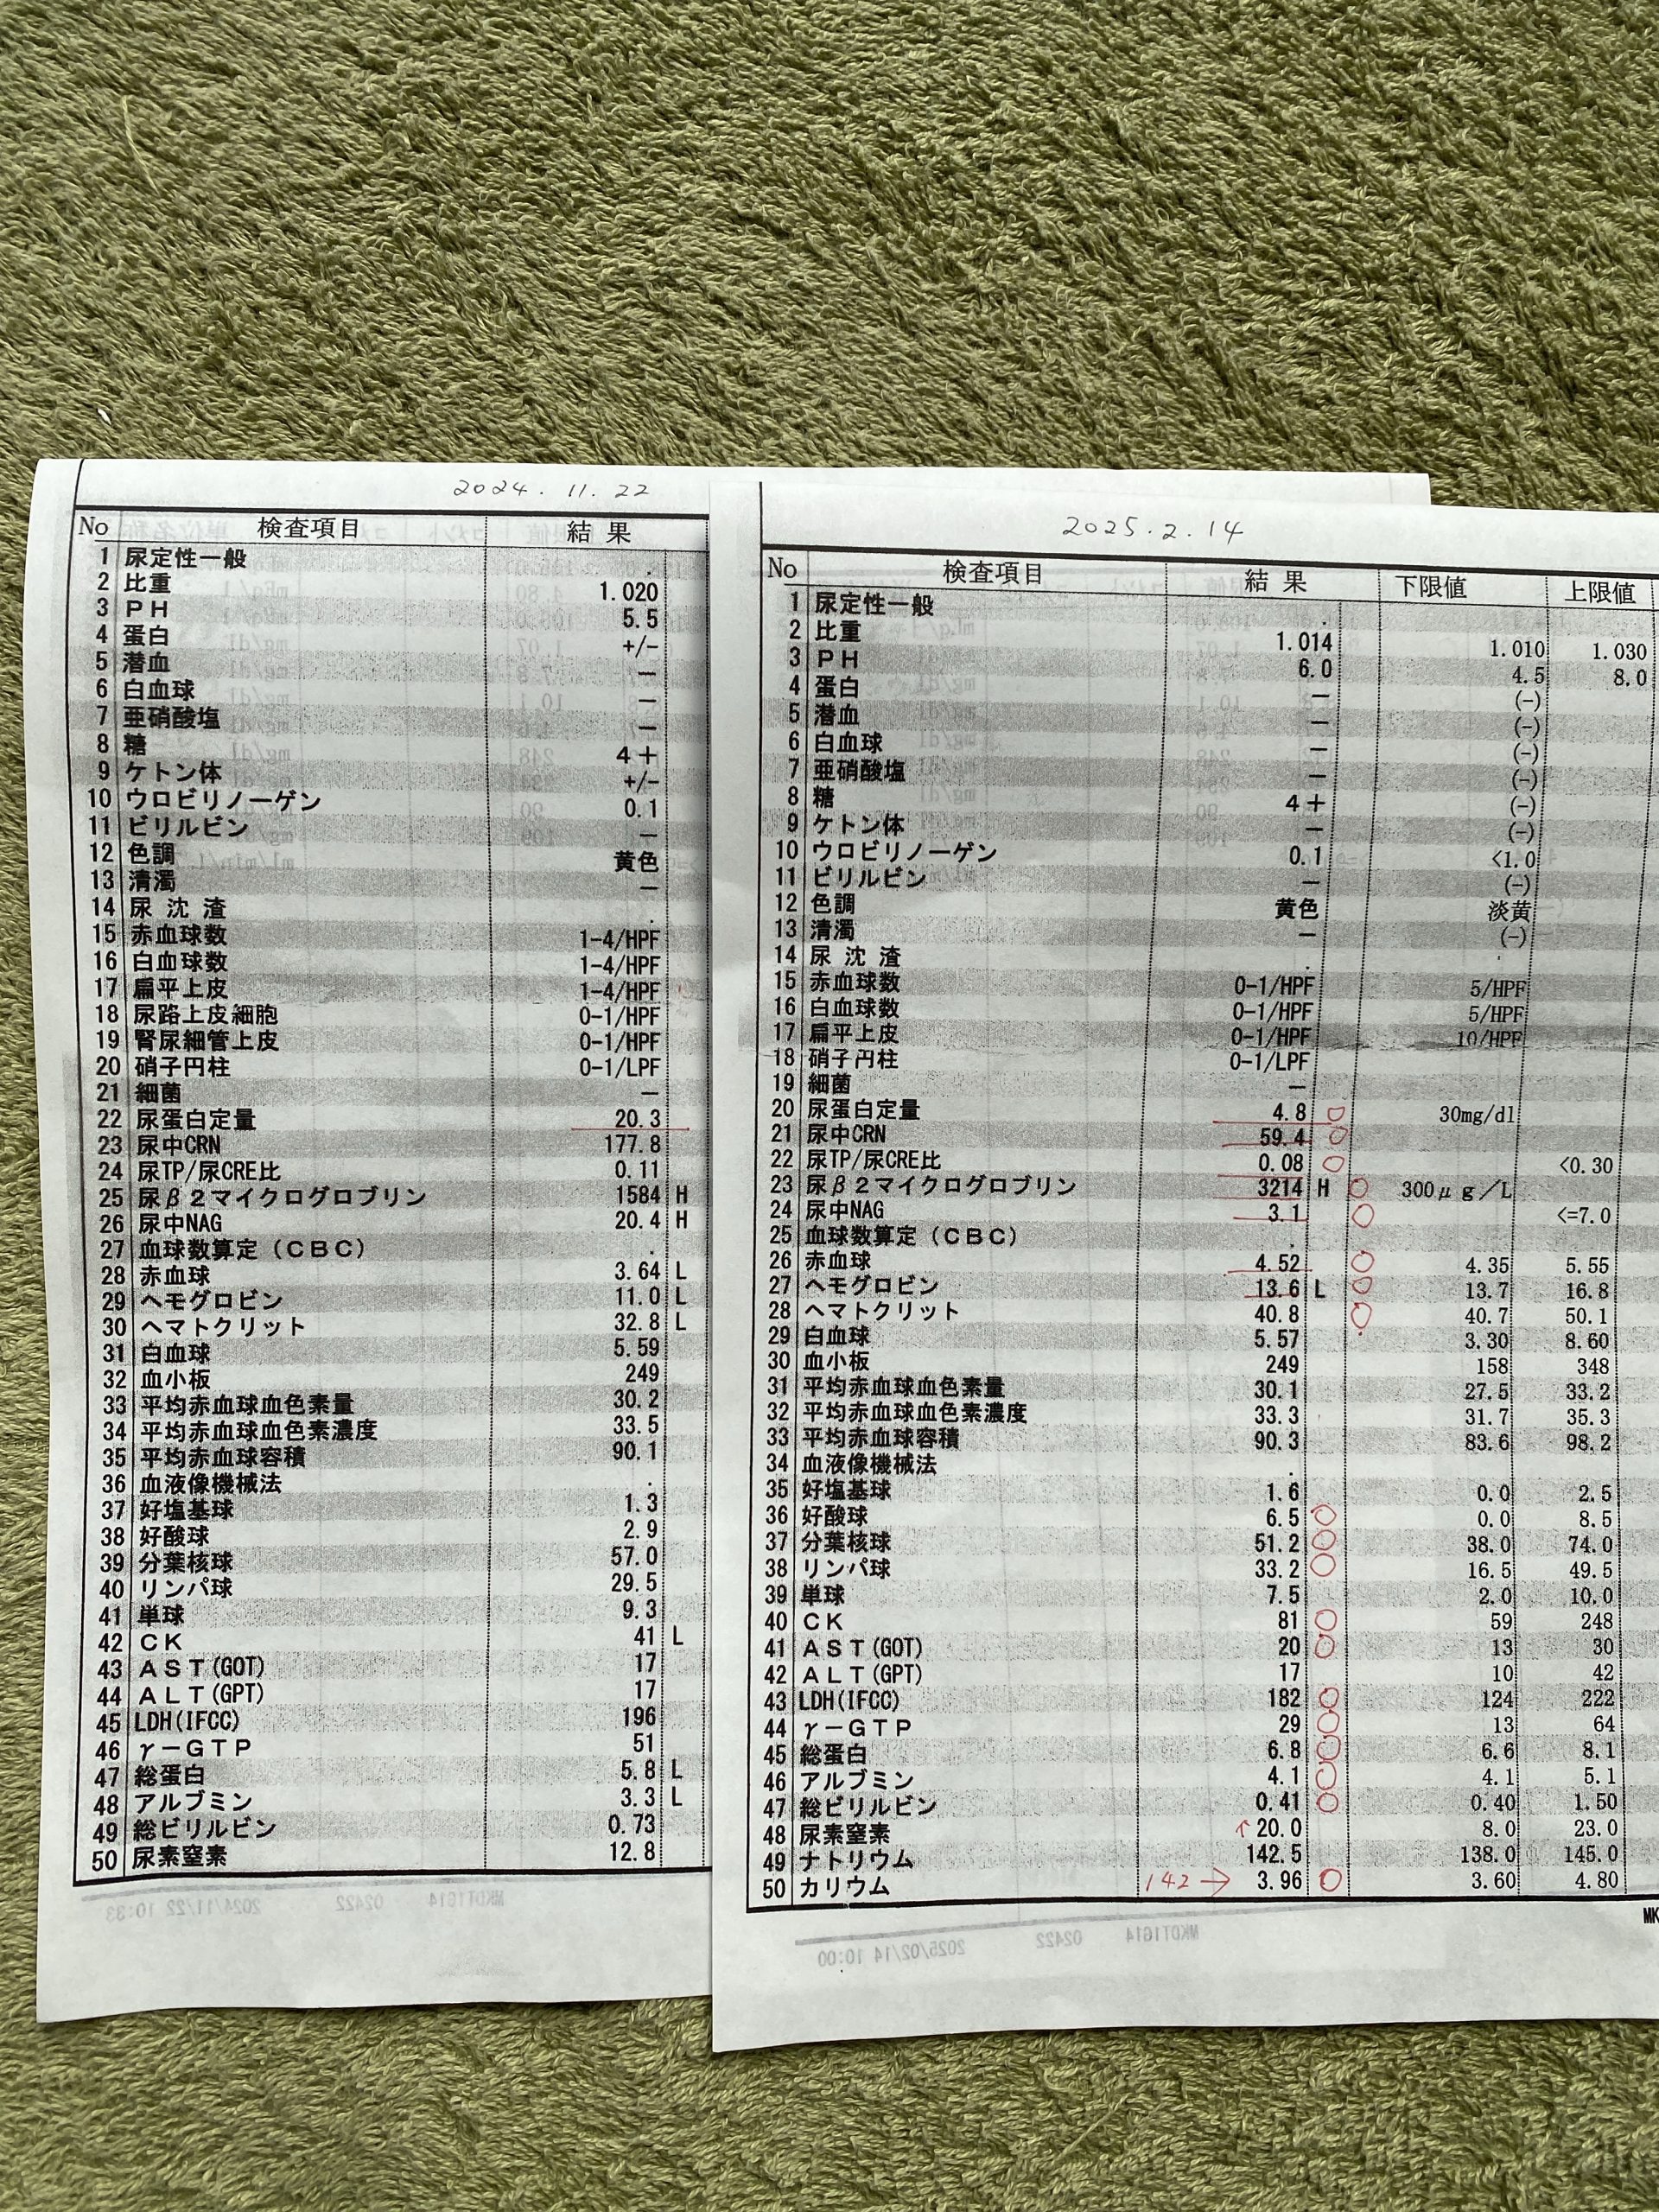 2024.11.22
No 検査項目 結果
1 尿定性一般 .
2 比重 1.020
3 PH 5.5
4 蛋白 +/-
5 潜血 −
6 白血球 −
7 亜硝酸塩 −
8 糖 4+
9 ケトン体 +/-
10 ウロビリノーゲン 0.1
11 ビリルビン −
12 色調 黄色
13 清濁 −
14 尿沈渣 .
15 赤血球数 1-4/HPF
16 白血球数 1-4/HPF
17 扁平上皮 1-4/HPF
18 尿路上皮細胞 0-1/HPF
19 腎尿細管上皮 0-1/HPF
20 硝子円柱 0-1/LPF
21 細菌 −
22 尿蛋白定量 20.3
23 尿中CRN 177.8
24 尿TP/尿CRE比 0.11
25 尿β2マイクログロブリン 1584 H
26 尿中NAG 20.4 H
27 血球数算定(CBC) .
28 赤血球 3.64 L
29 ヘモグロビン 11.0 L
30 ヘマトクリット 32.8 L
31 白血球 5.59
32 血小板 249
33 平均赤血球血色素量 30.2
34 平均赤血球血色素濃度 33.5
35 平均赤血球容積 90.1
36 血液像機械法 .
37 好塩基球 1.3
38 好酸球 2.9
39 分葉核球 57.0
40 リンパ球 29.5
41 単球 9.3
42 CK 41 L
43 AST(GOT) 17
44 ALT(GPT) 17
45 LDH(IFCC) 196
46 γ−GTP 51
47 総蛋白 5.8 L
48 アルブミン 3.3 L
49 総ビリルビン 0.73
50 尿素窒素 12.8
2024/11/22 10:33 02422 MKDT1G14
2025.2.14
No 検査項目 結果 下限値 上限値
1 尿定性一般 .
2 比重 1.014 1.010 1.030
3 PH 6.0 4.5 8.0
4 蛋白 − (-)
5 潜血 − (-)
6 白血球 − (-)
7 亜硝酸塩 − (-)
8 糖 4+ (-)
9 ケトン体 − (-)
10 ウロビリノーゲン 0.1 <1.0
11 ビリルビン − (-)
12 色調 黄色 淡黄
13 清濁 − (-)
14 尿沈渣 .
15 赤血球数 0-1/HPF 5/HPF
16 白血球数 0-1/HPF 5/HPF
17 扁平上皮 0-1/HPF 10/HPF
18 硝子円柱 0-1/LPF
19 細菌 −
20 尿蛋白定量 4.8 30mg/dl
21 尿中CRN 59.4
22 尿TP/尿CRE比 0.08 <0.30
23 尿β2マイクログロブリン 3214 H 300μg/L
24 尿中NAG 3.1 <=7.0
25 血球数算定(CBC) .
26 赤血球 4.52 4.35 5.55
27 ヘモグロビン 13.6 L 13.7 16.8
28 ヘマトクリット 40.8 40.7 50.1
29 白血球 5.57 3.30 8.60
30 血小板 249 158 348
31 平均赤血球血色素量 30.1 27.5 33.2
32 平均赤血球血色素濃度 33.3 31.7 35.3
33 平均赤血球容積 90.3 83.6 98.2
34 血液像機械法 .
35 好塩基球 1.6 0.0 2.5
36 好酸球 6.5 0.0 8.5
37 分葉核球 51.2 38.0 74.0
38 リンパ球 33.2 16.5 49.5
39 単球 7.5 2.0 10.0
40 CK 81 59 248
41 AST(GOT) 20 13 30
42 ALT(GPT) 17 10 42
43 LDH(IFCC) 182 124 222
44 γ−GTP 29 13 64
45 総蛋白 6.8 6.6 8.1
46 アルブミン 4.1 4.1 5.1
47 総ビリルビン 0.41 0.40 1.50
48 尿素窒素 ↑20.0 8.0 23.0
49 ナトリウム 142.5 138.0 145.0
50 カリウム 142→ 3.96 3.60 4.80
MK
2025/02/14 10:00 02422 MKDT1G14